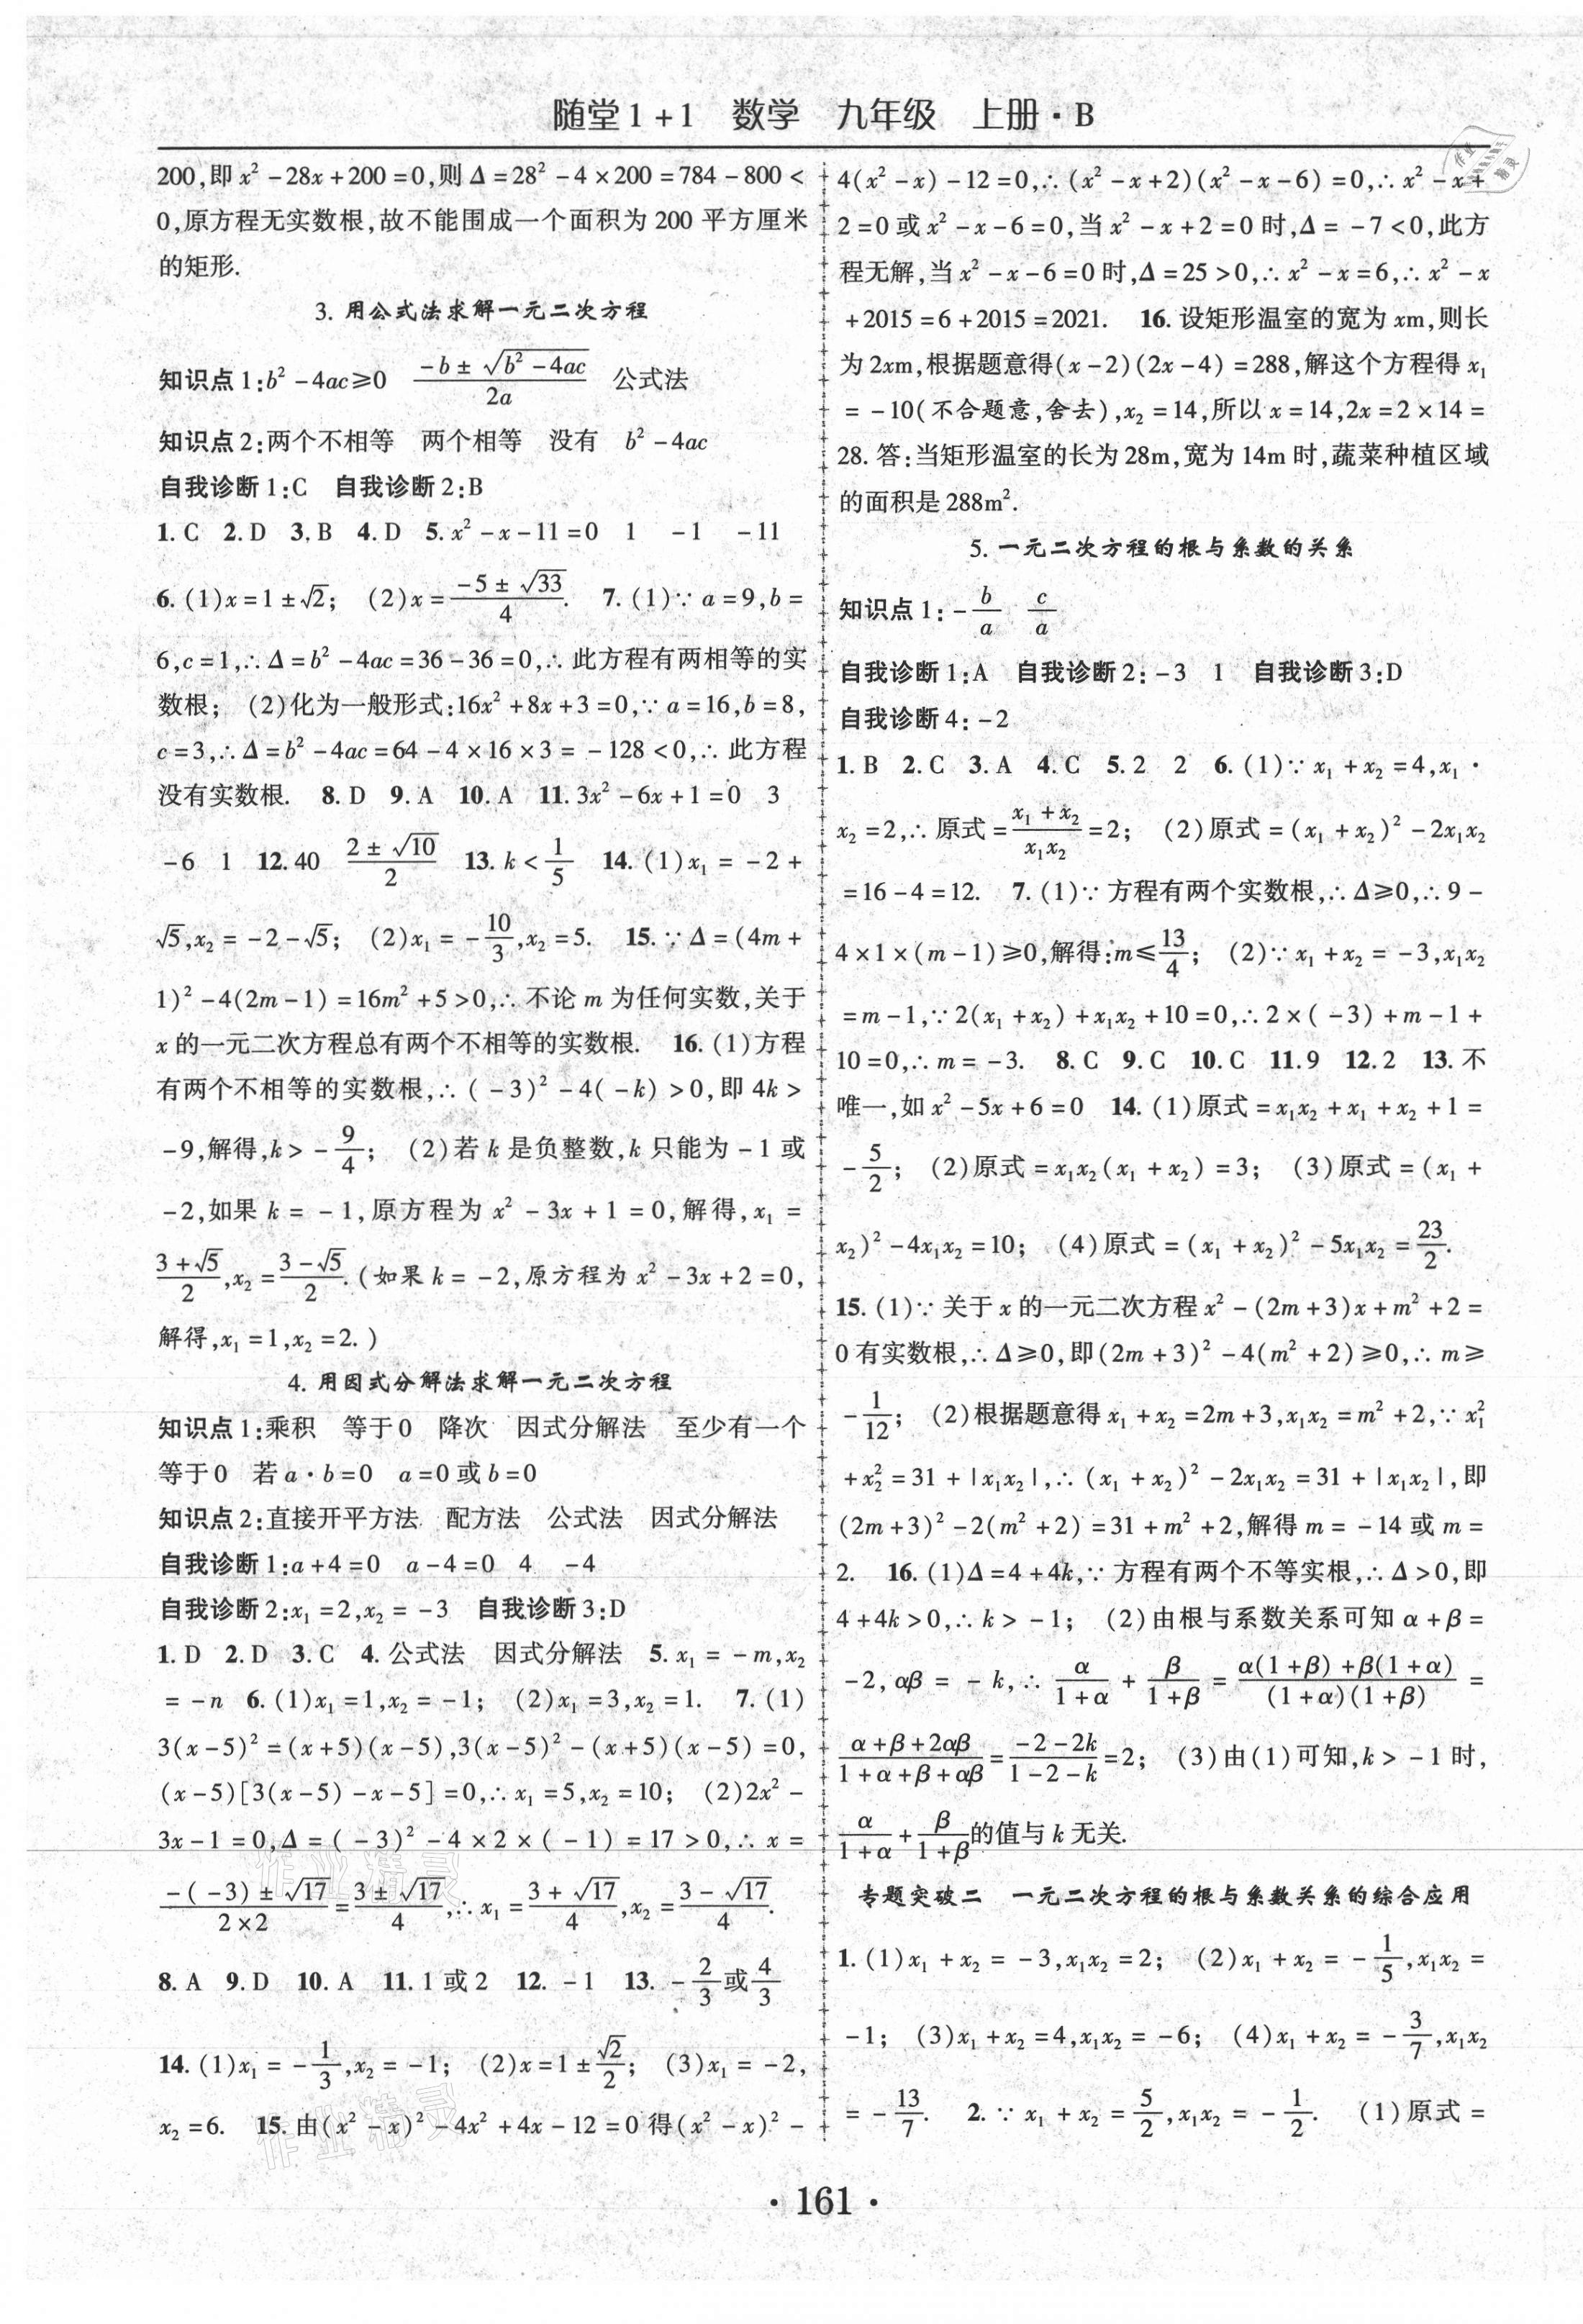 随堂1+1 数学 九年级 上册·B
200,即 x²-28x+200=0,则 Δ=28²-4×200=784-800<
0,原方程无实数根,故不能围成一个面积为200平方厘米
的矩形.
3. 用公式法求解一元二次方程
知识点1:b²-4ac≥0 (-b±√(b²-4ac))/(2a) 公式法
知识点2:两个不相等 两个相等 没有 b²-4ac
自我诊断1:C 自我诊断2:B
1. C 2. D 3. B 4. D 5. x²-x-11=0 1 -1 -11
6. (1)x=1±√2; (2)x=(-5±√33)/4. 7. (1)∵a=9,b=
6,c=1,∴Δ=b²-4ac=36-36=0,∴此方程有两相等的实
数根; (2)化为一般形式:16x²+8x+3=0,∵a=16,b=8,
c=3,∴Δ=b²-4ac=64-4×16×3=-128<0,∴此方程
没有实数根. 8. D 9. A 10. A 11. 3x²-6x+1=0 3
-6 1 12. 40 (2±√10)/2 13. k<1/5 14. (1)x₁=-2+
√5,x₂=-2-√5; (2)x₁=-10/3,x₂=5. 15. ∵Δ=(4m+
1)²-4(2m-1)=16m²+5>0,∴不论m为任何实数,关于
x的一元二次方程总有两个不相等的实数根. 16. (1)方程
有两个不相等的实数根,∴(-3)²-4(-k)>0,即4k>
-9,解得,k>-9/4; (2)若k是负整数,k只能为-1或
-2,如果k=-1,原方程为x²-3x+1=0,解得,x₁=
(3+√5)/2,x₂=(3-√5)/2.(如果k=-2,原方程为x²-3x+2=0,
解得,x₁=1,x₂=2.)
4. 用因式分解法求解一元二次方程
知识点1:乘积 等于0 降次 因式分解法 至少有一个
等于0 若a·b=0 a=0或b=0
知识点2:直接开平方法 配方法 公式法 因式分解法
自我诊断1:a+4=0 a-4=0 4 -4
自我诊断2:x₁=2,x₂=-3 自我诊断3:D
1. D 2. D 3. C 4. 公式法 因式分解法 5. x₁=-m,x₂
=-n 6. (1)x₁=1,x₂=-1; (2)x₁=3,x₂=1. 7. (1)
3(x-5)²=(x+5)(x-5),3(x-5)²-(x+5)(x-5)=0,
(x-5)[3(x-5)-x-5]=0,∴x₁=5,x₂=10; (2)2x²-
3x-1=0,Δ=(-3)²-4×2×(-1)=17>0,∴x=
(-(-3)±√17)/(2×2)=(3±√17)/4,∴x₁=(3+√17)/4,x₂=(3-√17)/4.
8. A 9. D 10. A 11. 1或2 12. -1 13. -2/3或4/3
14. (1)x₁=-1/3,x₂=-1; (2)x=1±√2/2; (3)x₁=-2,
x₂=6. 15. 由(x²-x)²-4x²+4x-12=0得(x²-x)²-
4(x²-x)-12=0,∴(x²-x+2)(x²-x-6)=0,∴x²-x+
2=0或x²-x-6=0,当x²-x+2=0时,Δ=-7<0,此方
程无解,当x²-x-6=0时,Δ=25>0,∴x²-x=6,∴x²-x
+2015=6+2015=2021. 16. 设矩形温室的宽为xm,则长
为2xm,根据题意得(x-2)(2x-4)=288,解这个方程得x₁
=-10(不合题意,舍去),x₂=14,所以x=14,2x=2×14=
28. 答:当矩形温室的长为28m,宽为14m时,蔬菜种植区域
的面积是288m².
5. 一元二次方程的根与系数的关系
知识点1:-b/a c/a
自我诊断1:A 自我诊断2:-3 1 自我诊断3:D
自我诊断4:-2
1. B 2. C 3. A 4. C 5. 2 2 6. (1)∵x₁+x₂=4,x₁·
x₂=2,∴原式=(x₁+x₂)/(x₁x₂)=2; (2)原式=(x₁+x₂)²-2x₁x₂
=16-4=12. 7. (1)∵方程有两个实数根,∴Δ≥0,∴9-
4×1×(m-1)≥0,解得:m≤13/4; (2)∵x₁+x₂=-3,x₁x₂
=m-1,∵2(x₁+x₂)+x₁x₂+10=0,∴2×(-3)+m-1+
10=0,∴m=-3. 8. C 9. C 10. C 11. 9 12. 2 13. 不
唯一,如x²-5x+6=0 14. (1)原式=x₁x₂+x₁+x₂+1=
-5/2; (2)原式=x₁x₂(x₁+x₂)=3; (3)原式=(x₁+
x₂)²-4x₁x₂=10; (4)原式=(x₁+x₂)²-5x₁x₂=23/2.
15. (1)∵关于x的一元二次方程x²-(2m+3)x+m²+2=
0有实数根,∴Δ≥0,即(2m+3)²-4(m²+2)≥0,∴m≥
-1/12; (2)根据题意得x₁+x₂=2m+3,x₁x₂=m²+2,∵x₁²
+x₂²=31+|x₁x₂|,∴(x₁+x₂)²-2x₁x₂=31+|x₁x₂|,即
(2m+3)²-2(m²+2)=31+m²+2,解得m=-14或m=
2. 16. (1)Δ=4+4k,∵方程有两个不等实根,∴Δ>0,即
4+4k>0,∴k>-1; (2)由根与系数关系可知α+β=
-2,αβ=-k,∴α/(1+α)+β/(1+β)=(α(1+β)+β(1+α))/((1+α)(1+β))=
(α+β+2αβ)/(1+α+β+αβ)=(-2-2k)/(1-2-k)=2; (3)由(1)可知,k>-1时,
α/(1+α)+β/(1+β)的值与k无关.
专题突破二 一元二次方程的根与系数关系的综合应用
1. (1)x₁+x₂=-3,x₁x₂=2; (2)x₁+x₂=-1/5,x₁x₂=
-1; (3)x₁+x₂=4,x₁x₂=-6; (4)x₁+x₂=-3/7,x₁x₂
=-13/7. 2. ∵x₁+x₂=5/2,x₁x₂=-1/2. (1)原式=
·161·
作业精灵
作业精灵